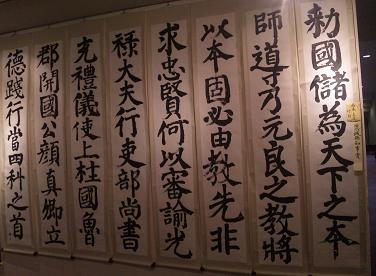 勅國儲為天下之本
師道乃元良之教將
以本固必由教先非
求忠賢何以審諭光
祿大夫行吏部尚書
充禮儀使上柱國魯
郡開國公顔真卿立
德踐行當四科之首